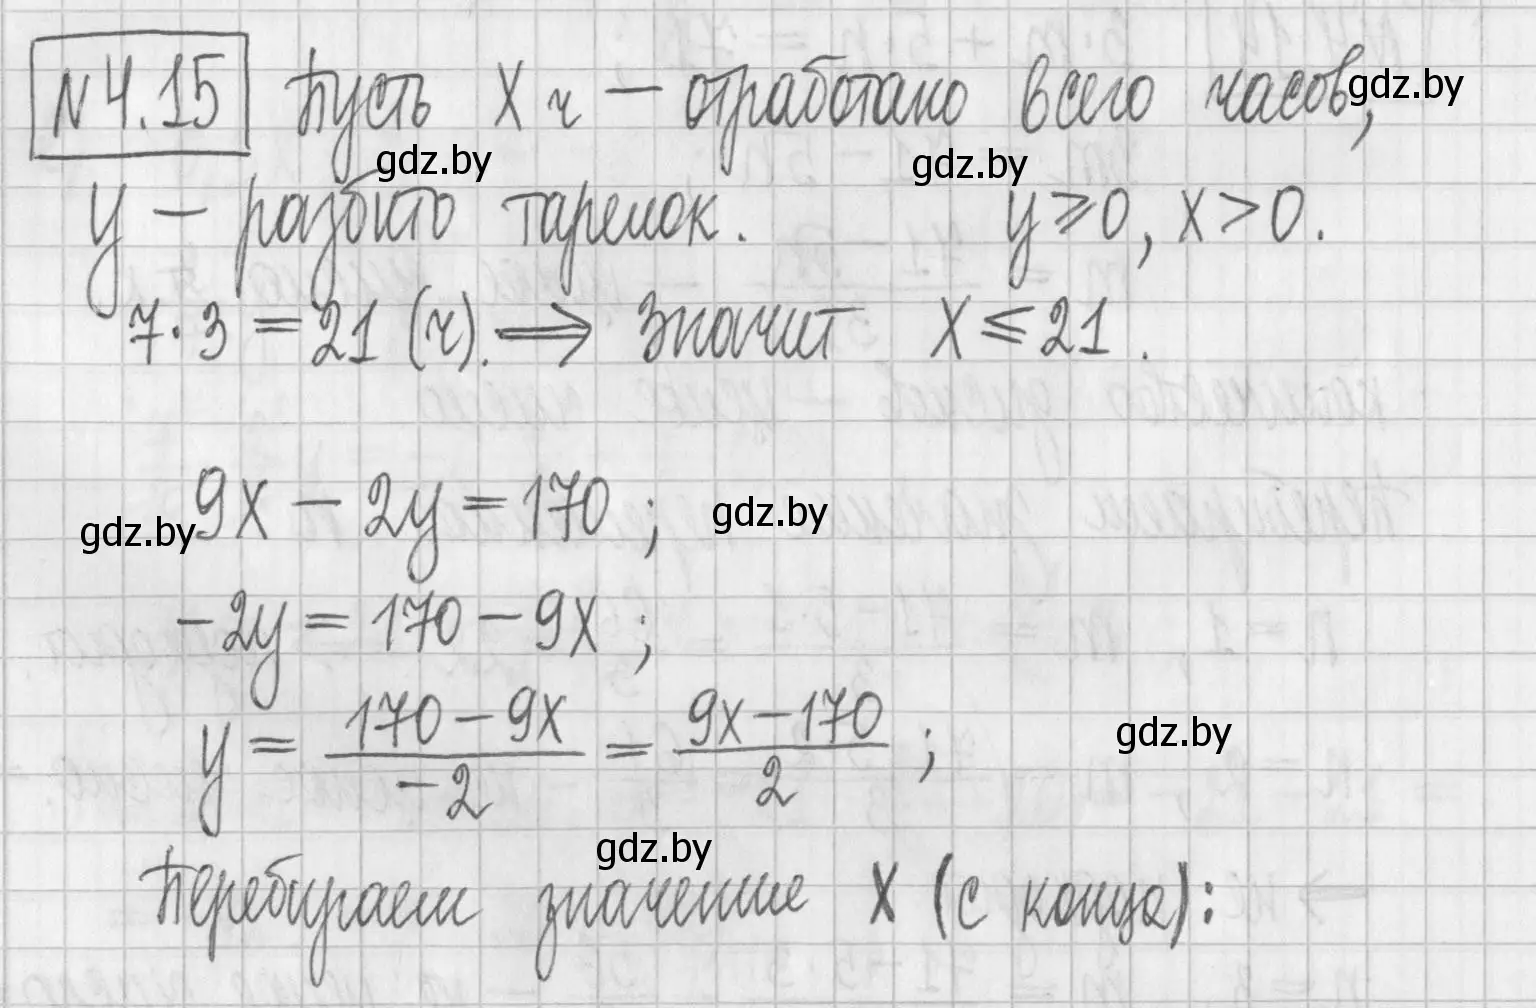 №4.15 Пусть x ч — отработано всего часов,
gdz.by
gdz.by
gdz.by
y — разбито тарелок. y ⩾ 0, x > 0.
7·3 = 21 (ч). ⟹ значит x ⩽ 21.
9x − 2y = 170;
gdz.by
gdz.by
−2y = 170 − 9x;
y = (170 − 9x)/(−2) = (9x − 170)/2;
gdz.by
gdz.by
Перебираем значение x (с конца):